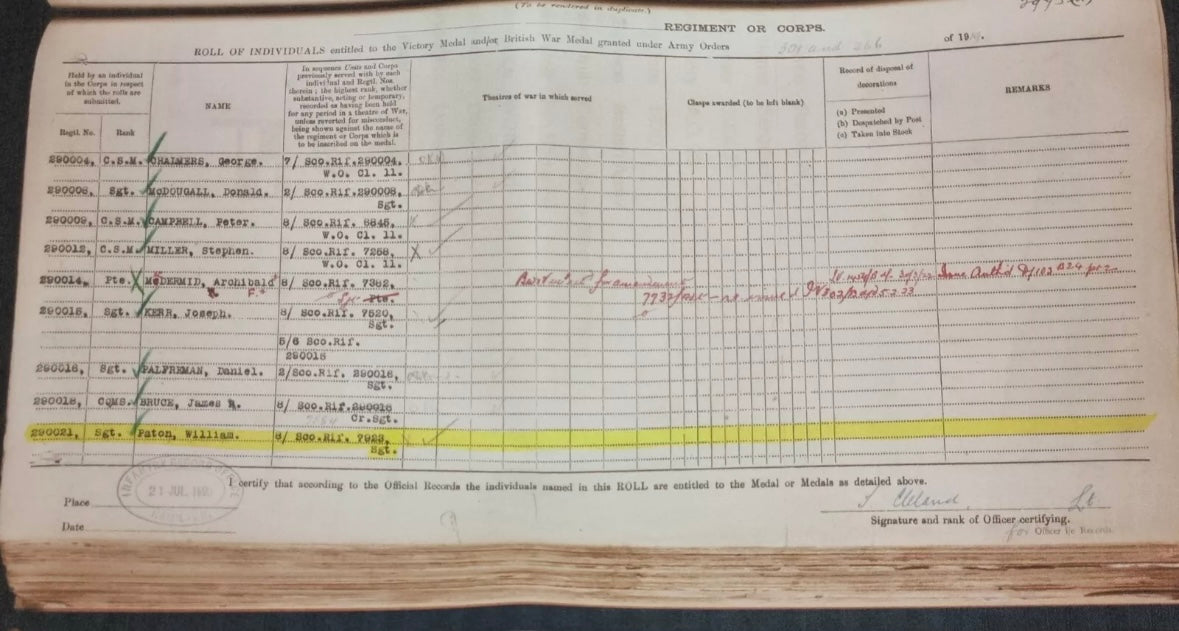 (To be rendered in duplicate.)
REGIMENT OR CORPS.
ROLL OF INDIVIDUALS entitled to the Victory Medal and/or British War Medal granted under Army Orders 301 and 266 of 1919.
Held by an individual
in the Corps in respect
of which the rolls are
submitted.
Regtl. No.
Rank
NAME
In sequence Units and Corps
previously served with by each
individual and Regtl. Nos.
therein; the highest rank, whether
substantive, acting or temporary,
recorded as having been held
for any period in a theatre of War,
unless reverted for misconduct,
being shown against the name of
the regiment or Corps which is
to be inscribed on the medal.
Theatres of war in which served
Clasps awarded (to be left blank)
Record of disposal of
decorations
(a) Presented
(b) Despatched by Post
(c) Taken into Stock
REMARKS
290004, C.S.M. CHALMERS, George. 7/ Sco.Rif.290004.
W.O. Cl. 11.
290008, Sgt. McDOUGALL, Donald. 2/ Sco.Rif.290008,
Sgt.
290009, C.S.M. CAMPBELL, Peter. 8/ Sco.Rif.
W.O. Cl. 11.
290012, C.S.M. MILLER, Stephen. 8/ Sco.Rif. 7258, X
W.O. Cl. 11.
290014, Pte. X Archibald 8/ Sco.Rif.
Pte.
Sgt. KERR, Joseph. 8/ Sco.Rif. 7520,
Sgt.
5/6 Sco.Rif.
Sgt. PALFREMAN, Daniel. 2/Sco.Rif. 290016,
Sgt.
290018, CQMS. BRUCE, James 8/ Sco.Rif.290018
Cr.Sgt.
290021, Sgt. Paton, William. 8/ Sco.Rif. 7923,
Sgt.
21 JUL 1920
I certify that according to the Official Records the individuals named in this ROLL are entitled to the Medal or Medals as detailed above.
Place
Date
Cleland Lt.
Signature and rank of Officer certifying.
for Officer i/c Records.